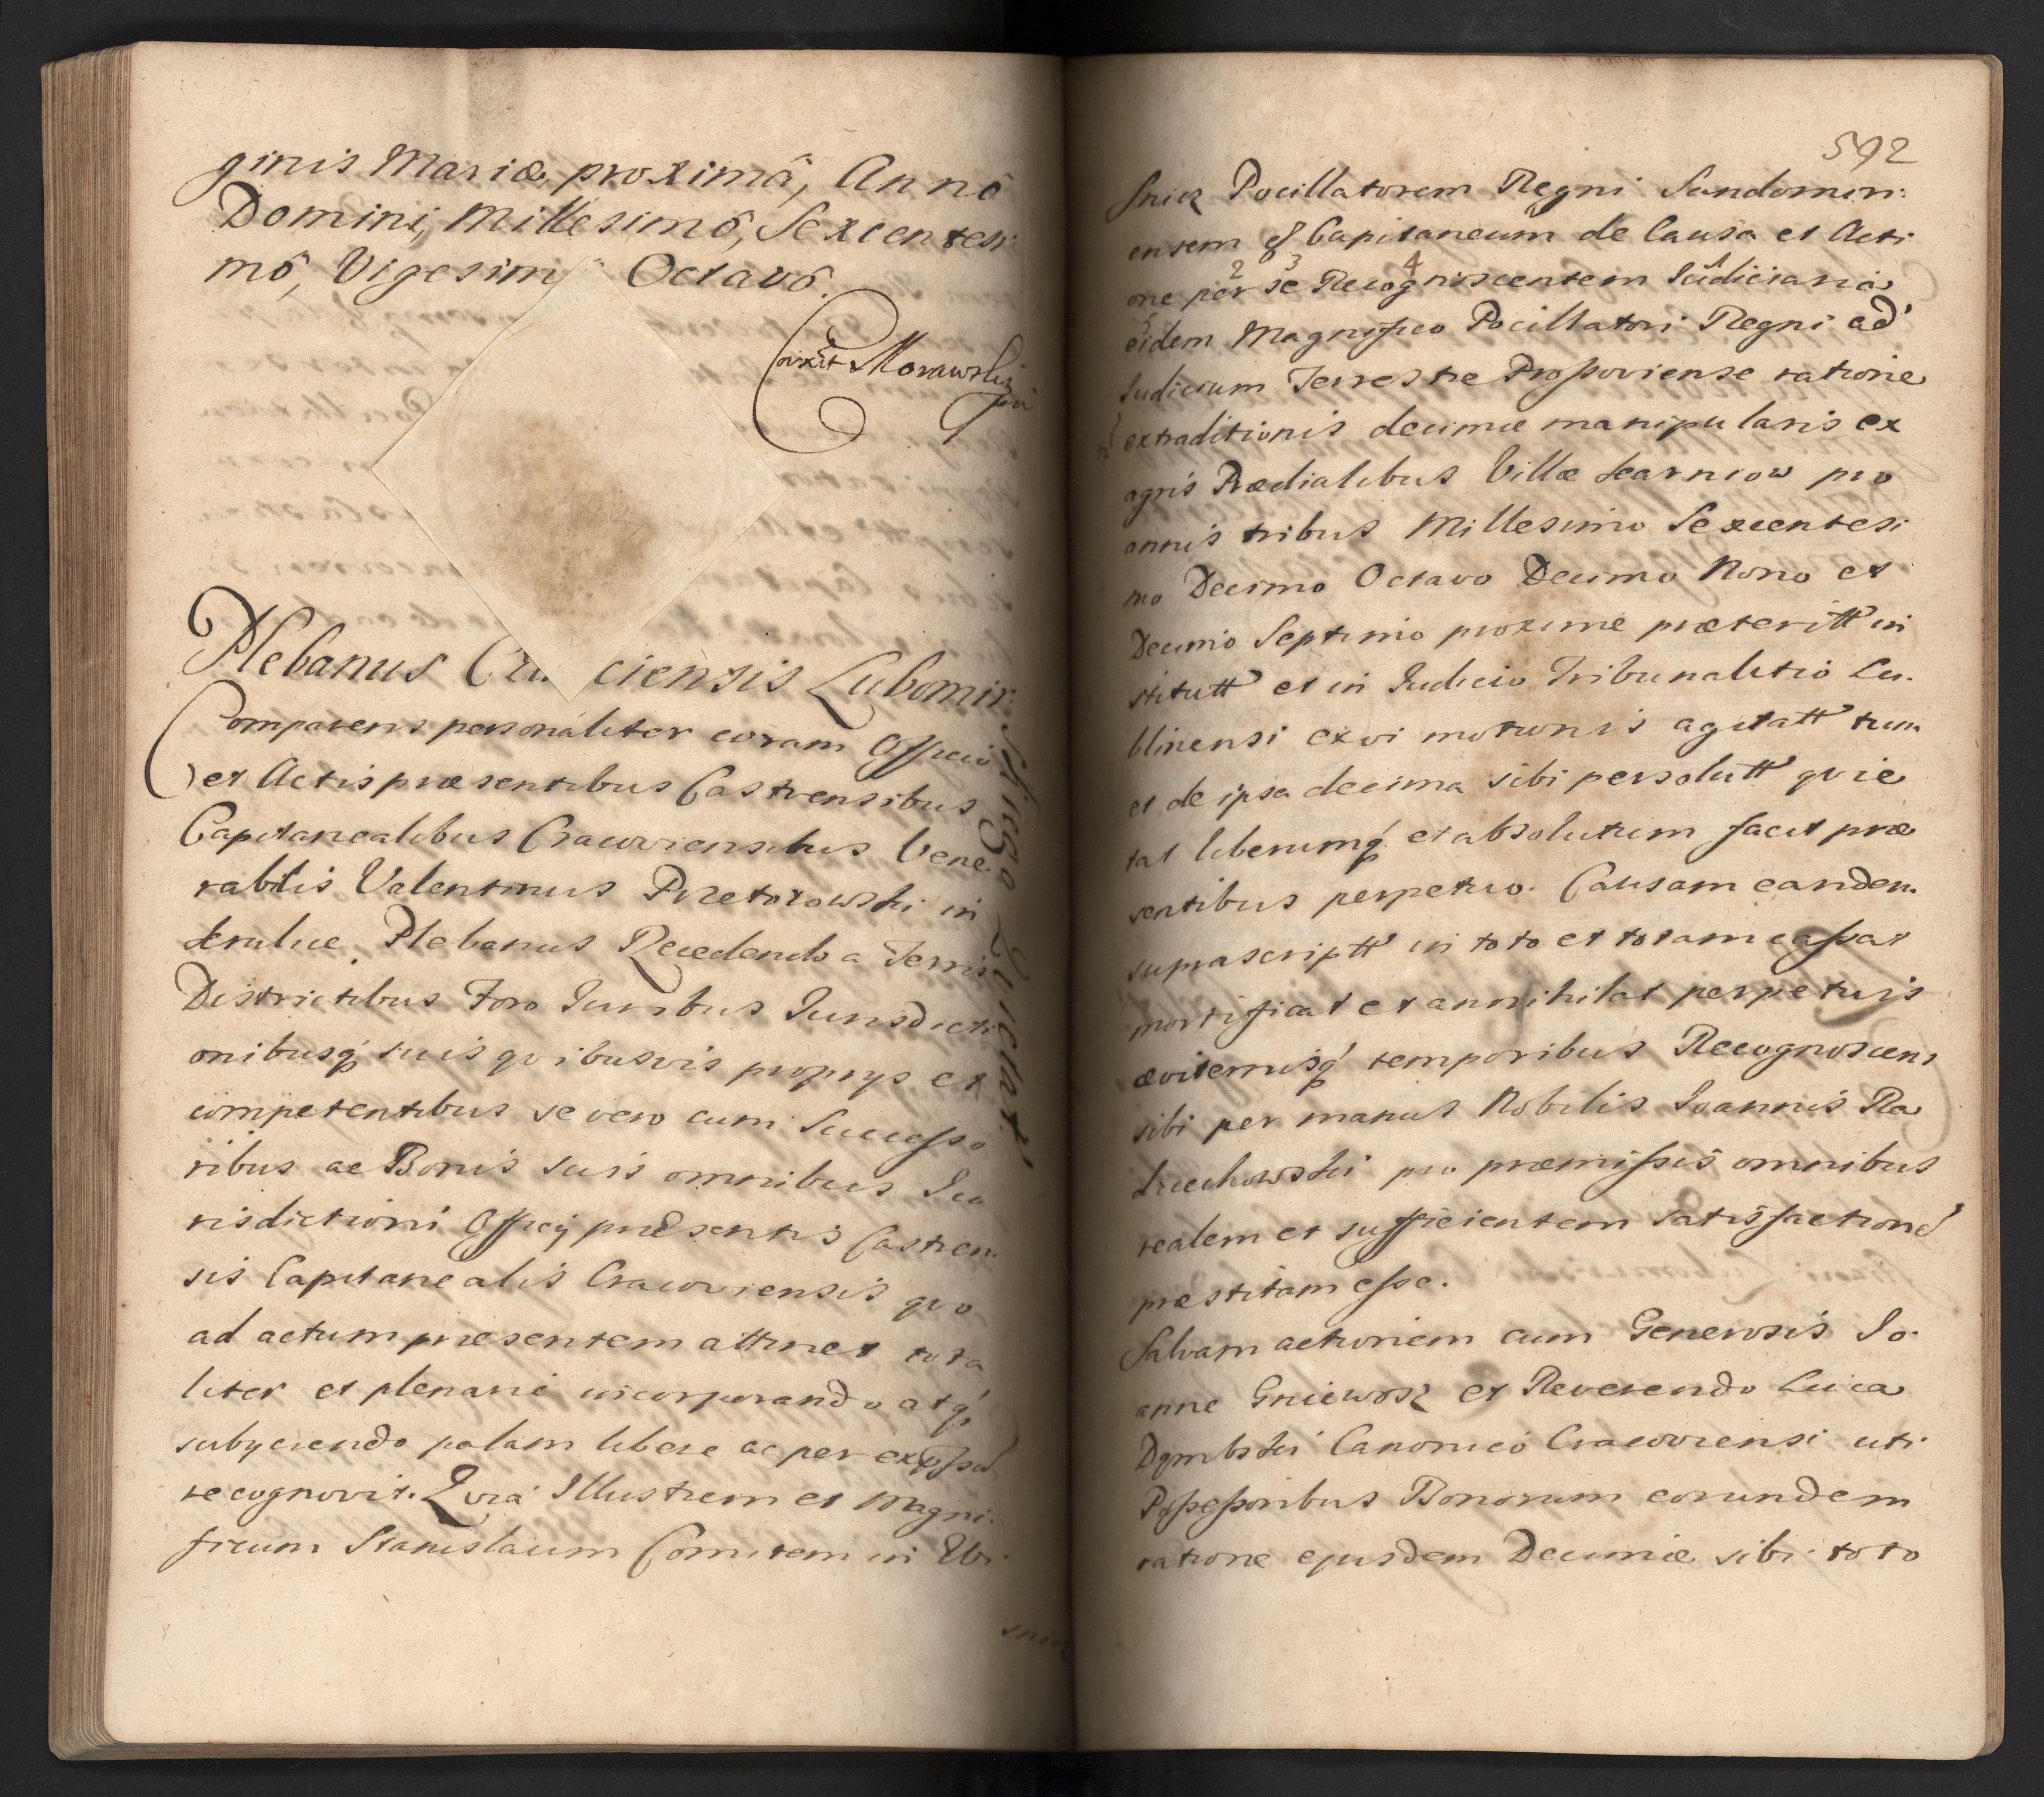 ginis Mariæ, proximâ, Annô
Domini, Millesimô, Sexcentesi
mô, Vigesim Octavô.
Morawski
Plebanus ciensis Lubomir
skiego Quietat.
Comparens personaliter coram Officio
et Actis præsentibus Castrensibus
Capitanealibus Cracoviensibus Vene
rabilis Valentinus Przetorowski in
Plebanus Recedendo a Terris
Districtibus Foro Iuribus Iurisdicti
onibusq suis quibusvis proprys et
competentibus se vero cum Successo
ribus ac Bonis suis omnibus Iu
risdictioni Officy præsentis Castren
sis Capitanealis Cracoviensis quo
ad actum præsentem attinet tota
liter et plenarie incorporando atq
subyciendo palam libere ac per expssu
recognovit. Quia Illustrem et Magni
ficum Stanislaum Comitem in Wi
snicz
592
snicz Pocillatorem Regni Sandomiri
ensem Capitaneum de Causa et Acti
one per se Recogniscentem Iudiciaria
2 3 4 1
eidem Magnifico Pocillatori Regni ad
Iudicium Terrestre Proszoviense ratione
extraditionis decimæ manipularis ex
agris Prædialibus Villæ pro
annis tribus Millesimo Sexcentesi
mo Decimo Octavo Decimo Nono et
Decimo Septimo proxime præteritt in
stitutt et in Iudicio Tribunalitio Lu
blinensi ex vi motionis agitatt tum
et de ipsa decima sibi persolutt quie
tat liberumq et absolutum facit præ
sentibus perpetuo. Causam eandem
suprascriptt in toto et totam cassat
mortificat et annihilat perpetuis
æviternisq temporibus Recognoscens
sibi per manus Nobilis Ioannis Ra
pro præmissis omnibus
realem et sufficientem satisfactione
præstitam esse.
Salvam actionem cum Generosis Io
anne Gniewosz et Reverendo Luca
Dąmbski Canonico Cracoviensi uti
Possessoribus Bonorum eorundem
ratione ejusdem Decimæ sibi toto